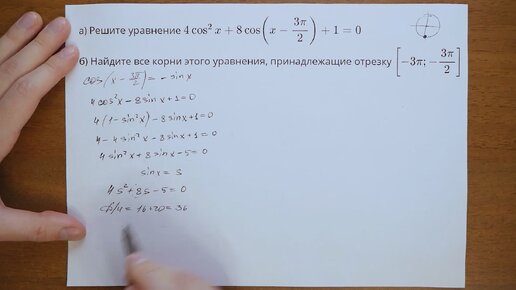 а) Решите уравнение 4 cos² x + 8 cos(x − 3π/2) + 1 = 0
б) Найдите все корни этого уравнения, принадлежащие отрезку [−3π; −3π/2]
cos(x − 3π/2) = − sin x
4 cos²x − 8 sin x + 1 = 0
4(1 − sin²x) − 8 sin x + 1 = 0
4 − 4 sin²x − 8 sin x + 1 = 0
4 sin²x + 8 sin x − 5 = 0
sin x = s
4s² + 8s − 5 = 0
D/4 = 16 + 20 = 36